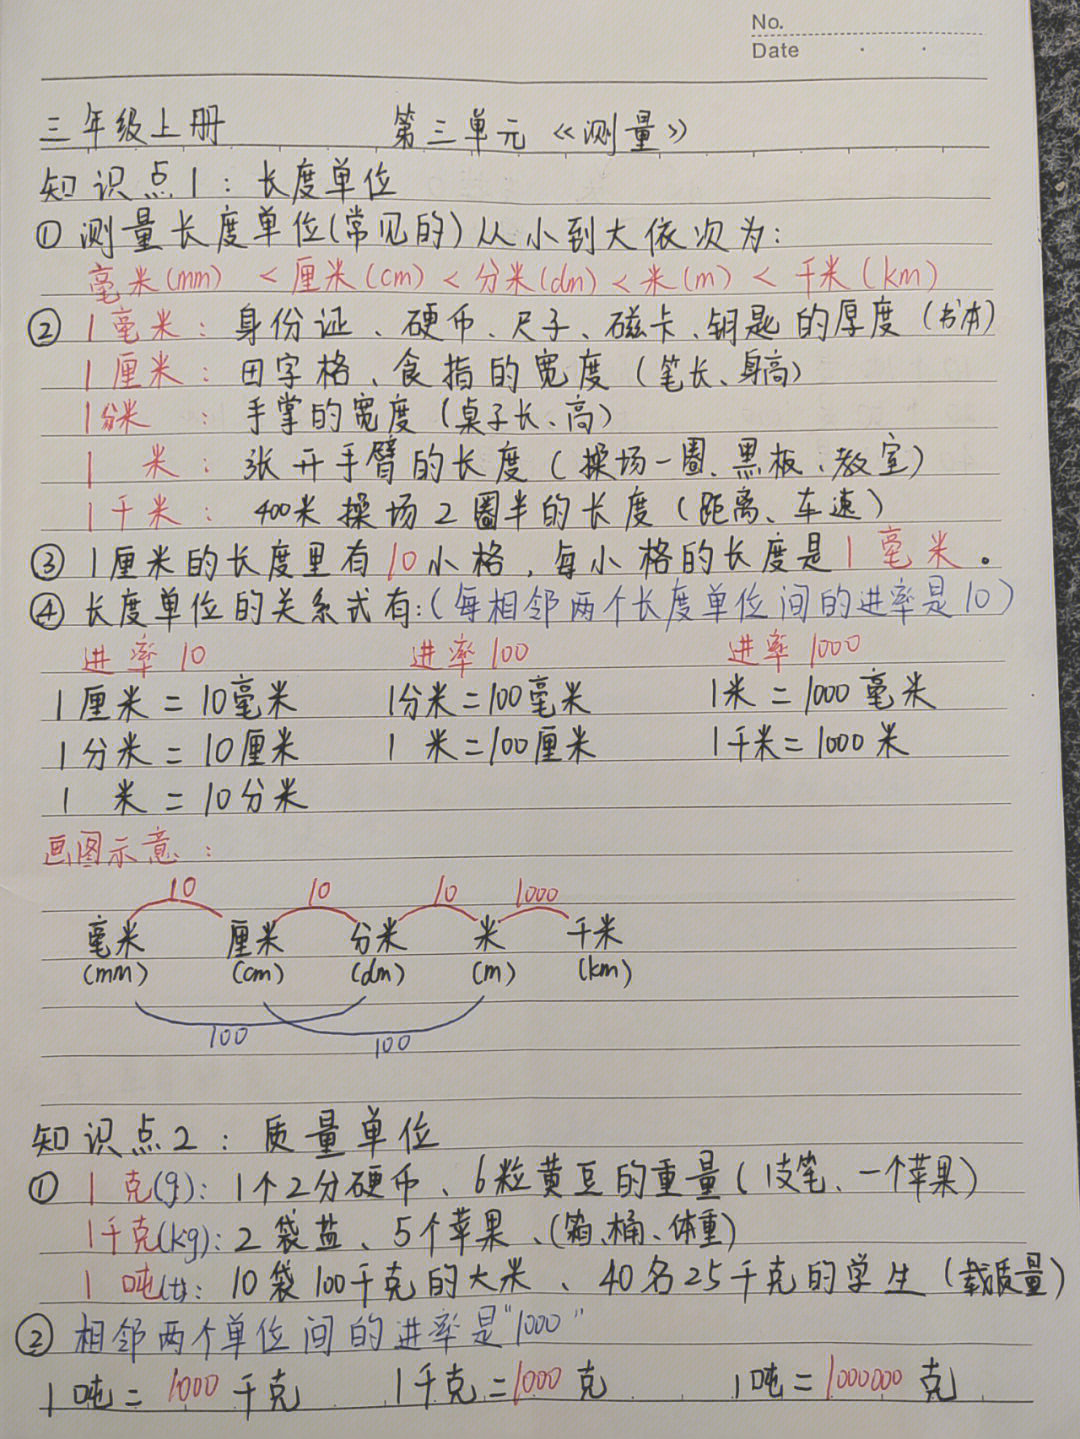 No.
Date
三年级上册 第三单元《测量》
知识点1：长度单位
①测量长度单位(常见的)从小到大依次为：
毫米(mm) <厘米(cm)<分米(dm)<米(m)< 千米(km)
②1毫米：身份证、硬币、尺子、磁卡、钥匙的厚度(书本)
1厘米：田字格、食指的宽度(笔长、身高)
1分米：手掌的宽度(桌子长、高)
1 米：张开手臂的长度(操场一圈、黑板、教室)
1千米：400米操场2圈半的长度(距离、车速)
③1厘米的长度里有10小格，每小格的长度是1毫米。
④长度单位的关系式有:(每相邻两个长度单位间的进率是10)
进率10 进率100 进率1000
1厘米=10毫米 1分米=100毫米 1米=1000毫米
1分米=10厘米 1 米=100厘米 1千米=1000米
1 米=10分米
画图示意：
10 10 10 1000
毫米 厘米 分米 米 千米
(mm) (cm) (dm) (m) (km)
100 100
知识点2：质量单位
①1克(g)：1个2分硬币、6粒黄豆的重量(1支笔、一个苹果)
1千克(kg)：2袋盐、5个苹果、(箱、桶、体重)
1吨(t)：10袋100千克的大米、40名25千克的学生(载质量)
②相邻两个单位间的进率是"1000"
1吨=1000千克 1千克=1000克 1吨=1000000克